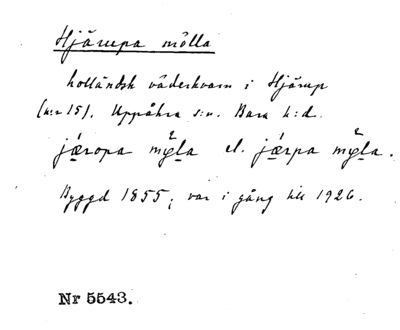 Hjärupa mölla
holländsk väderkvarn i Hjärup
(n:r 15). Uppåkra s:n. Bara h:d.
jǽropa mỳla el. jǽrpa mỳla.
Byggd 1855; var i gång till 1926.
Nr 5543.